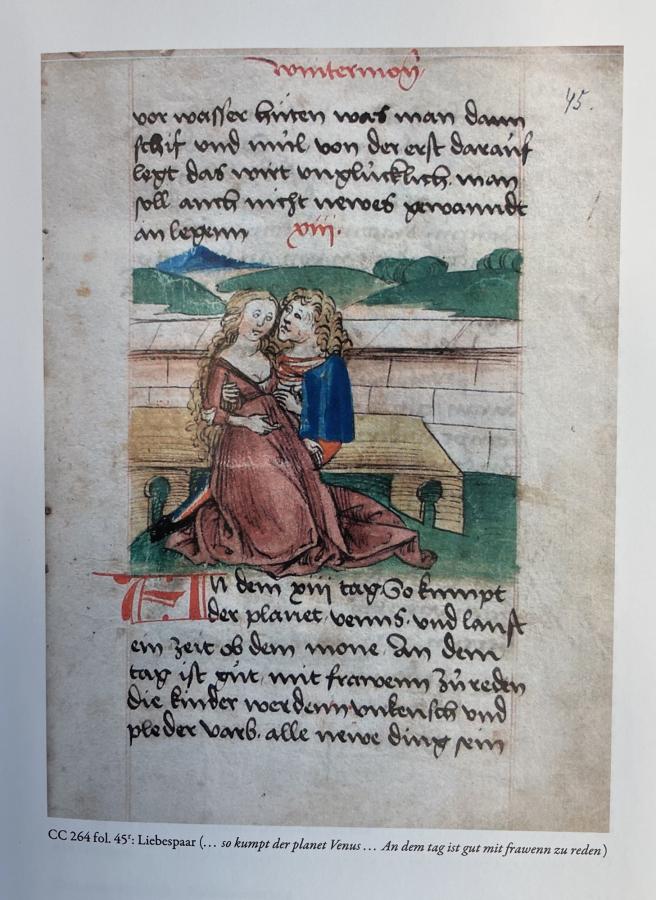 wintermon
45.
vor wasser hüten was man dann
schif vnd mül von der erst darauf
legt das wirt vnglücklich. man
soll auch nicht newes gewanndt
an legenn xiii.
An dem xiii tag. So kumpt
der planet venus. vnd lauft
ein zeit ob dem mone. An dem
tag ist güt. mit frawenn zü reden
die kinder werdenn vnkeusch vnd
pleder varb. alle newe ding sein
CC 264 fol. 45r: Liebespaar (… so kumpt der planet Venus … An dem tag ist gut mit frawenn zu reden)